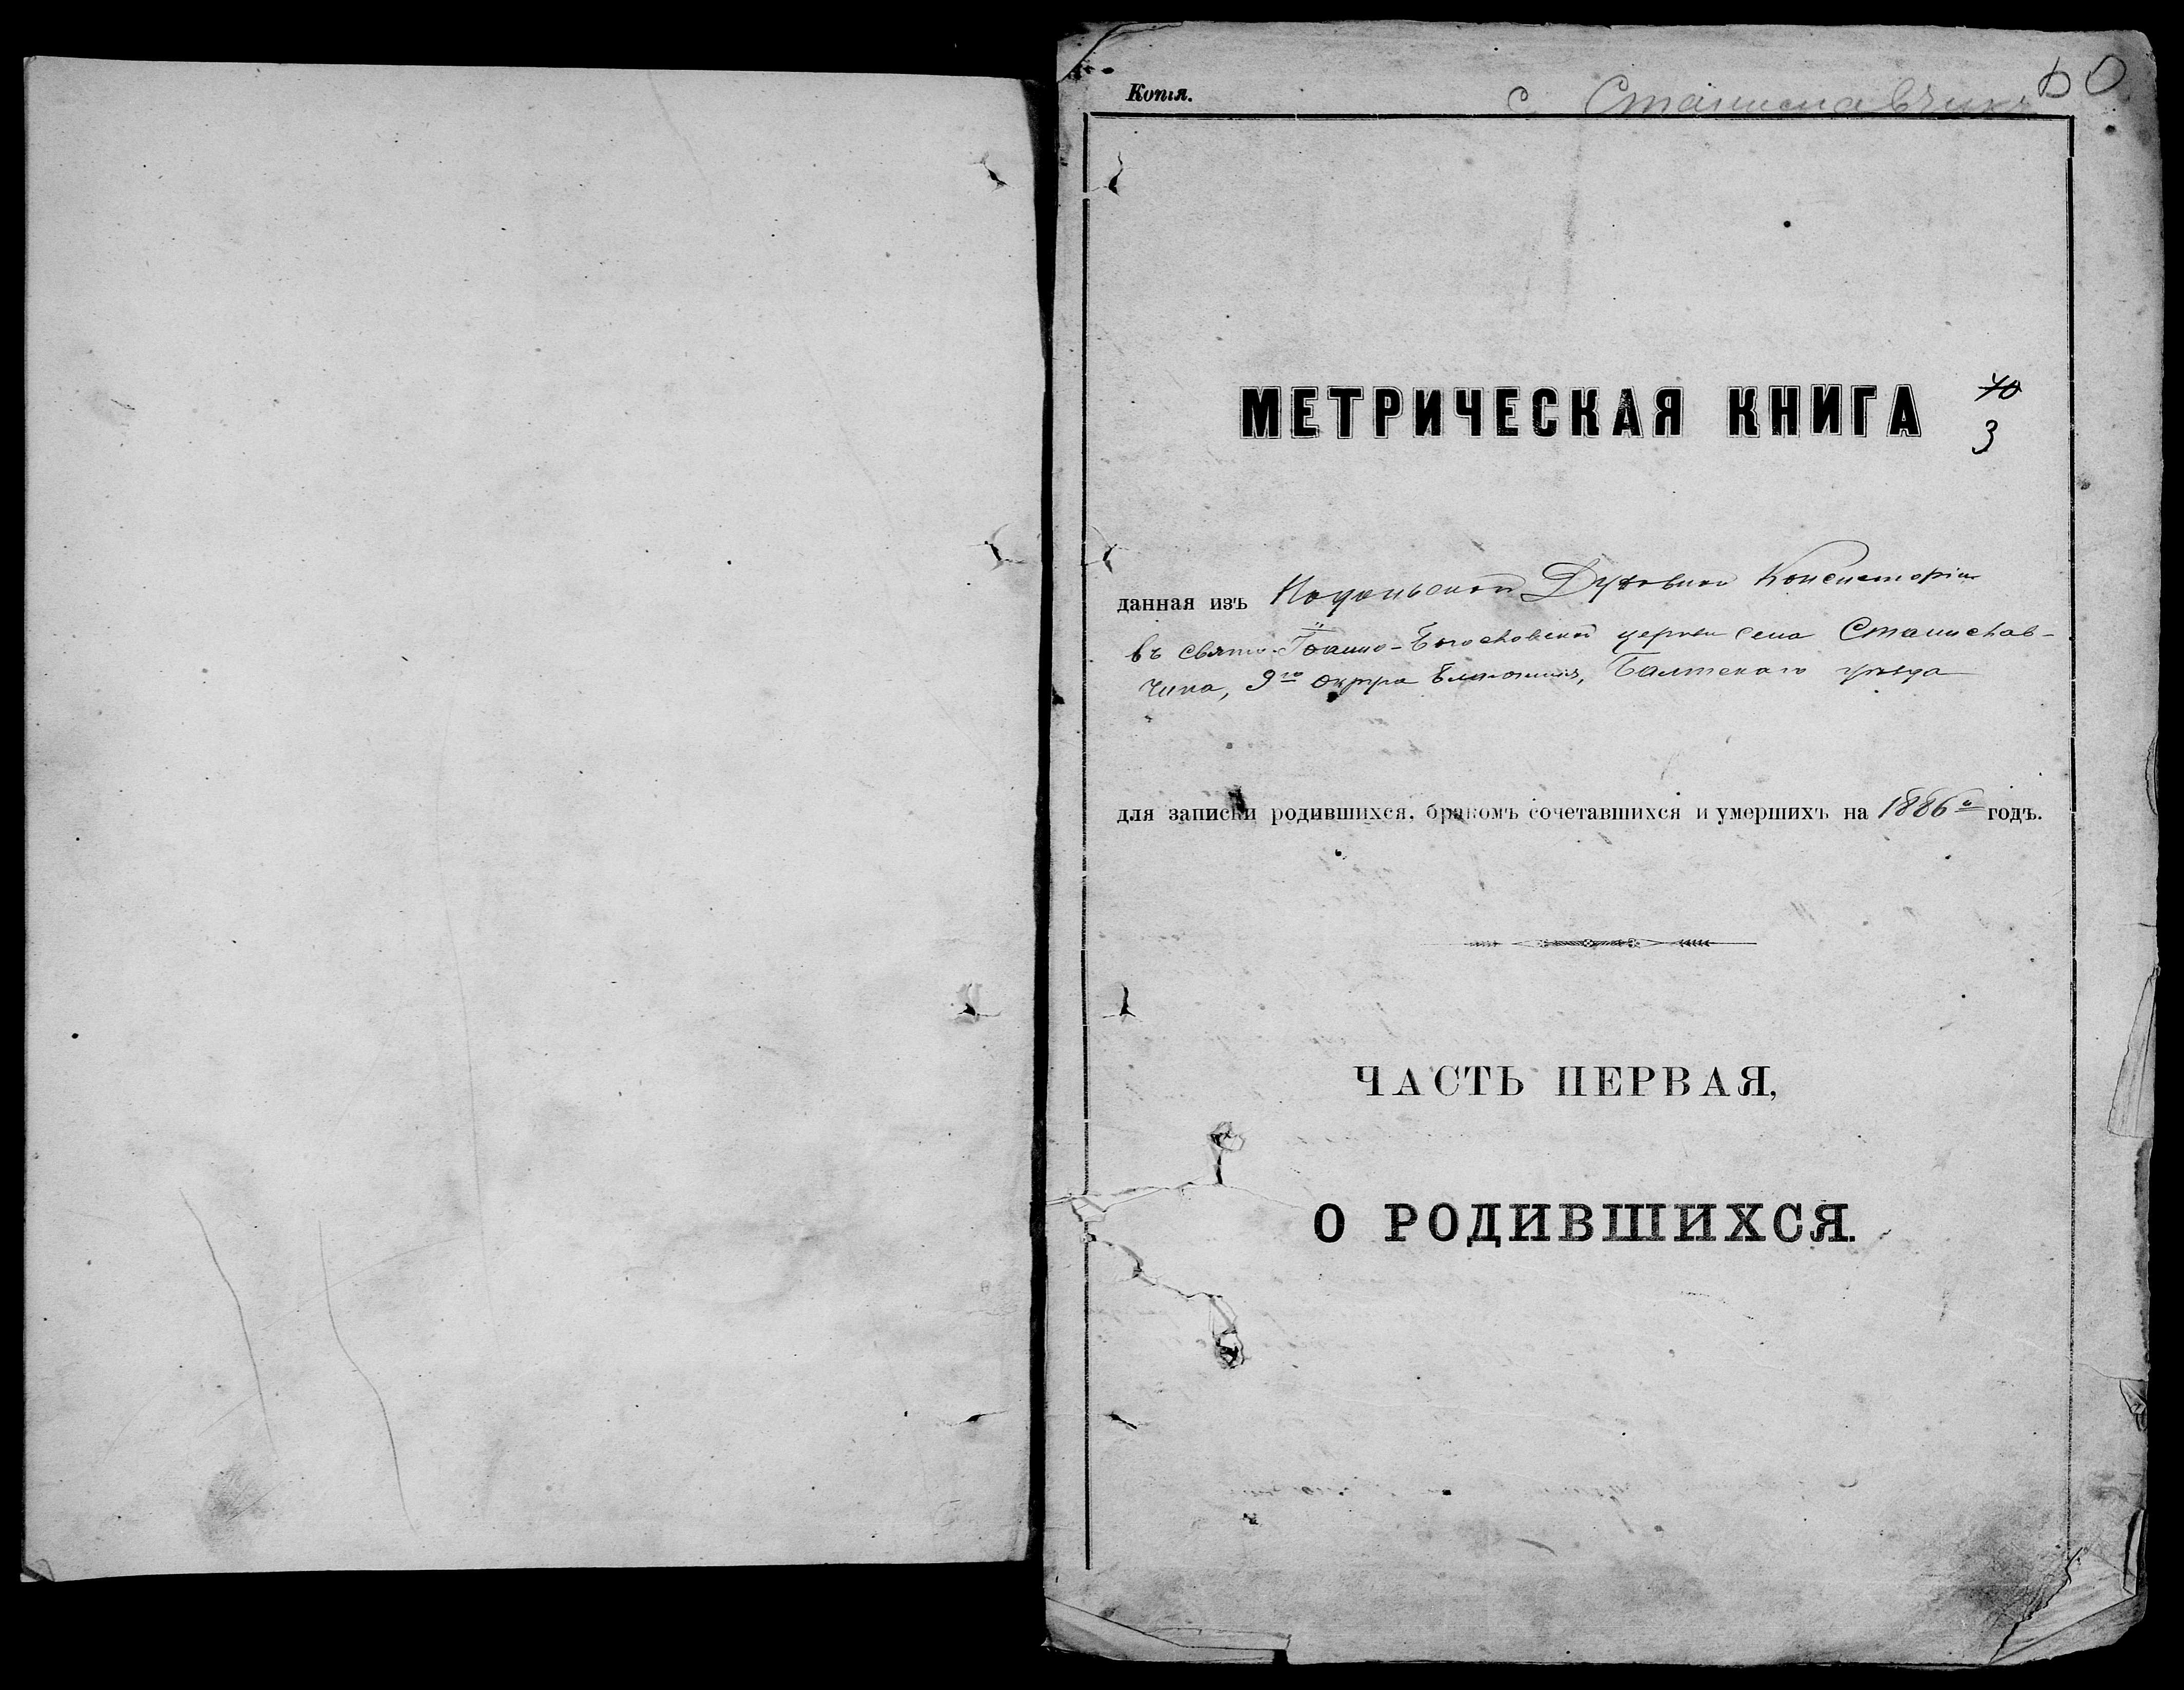 Копія.
с. Станиславчикъ
МЕТРИЧЕСКАЯ КНИГА
70
3
данная изъ Подольской Духовной Консисторіи
въ Свято-Іоанно-Богословской церкви села Станислав-
чика, 9го округа Благочинія, Балтского уѣзда
для записки родившихся, бракомъ сочетавшихся и умершихъ на 1886й годъ.
ЧАСТЬ ПЕРВАЯ,
О РОДИВШИХСЯ.